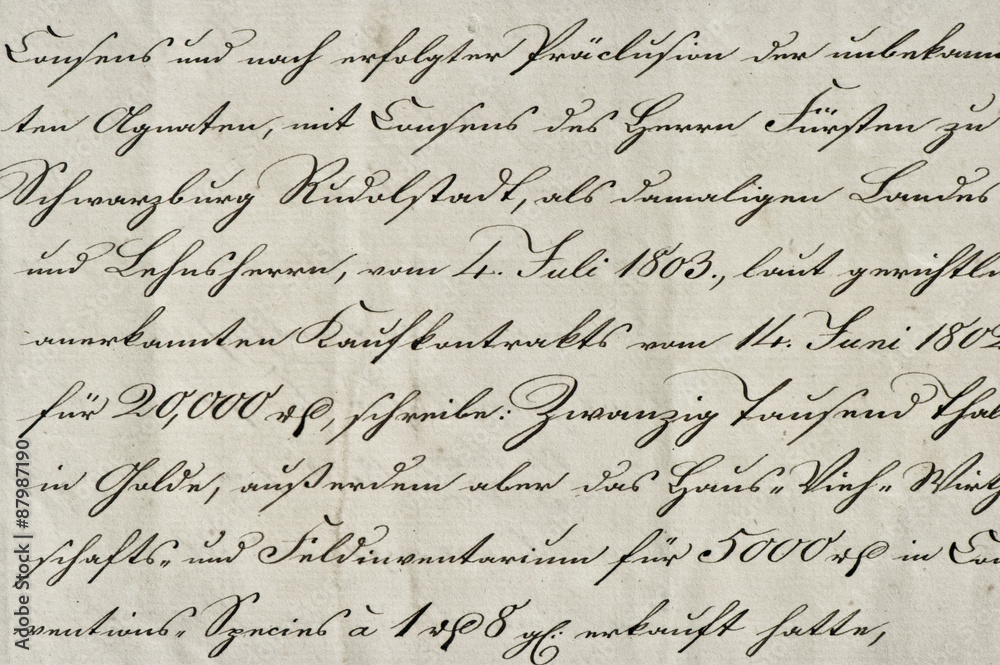 Consens und nach erfolgter Präclusion der unbekann
ten Agnaten, mit Consens des Herrn Fürsten zu
Schwarzburg Rudolstadt, als damaligen Landes
und Lehnsherrn, vom 4. Juli 1803., laut gerichtli
anerkannten Kaufkontrakts vom 14. Juni 1802
für 20,000 rß, schreibe: Zwanzig Tausend Thal
in Golde, außerdem aber das Haus- Vieh- Wirth
schafts- und Feldinventarium für 5000 rß in Con
ventions- Species à 1 rß 8 gl. erkauft hatte,
Adobe Stock | #87987190